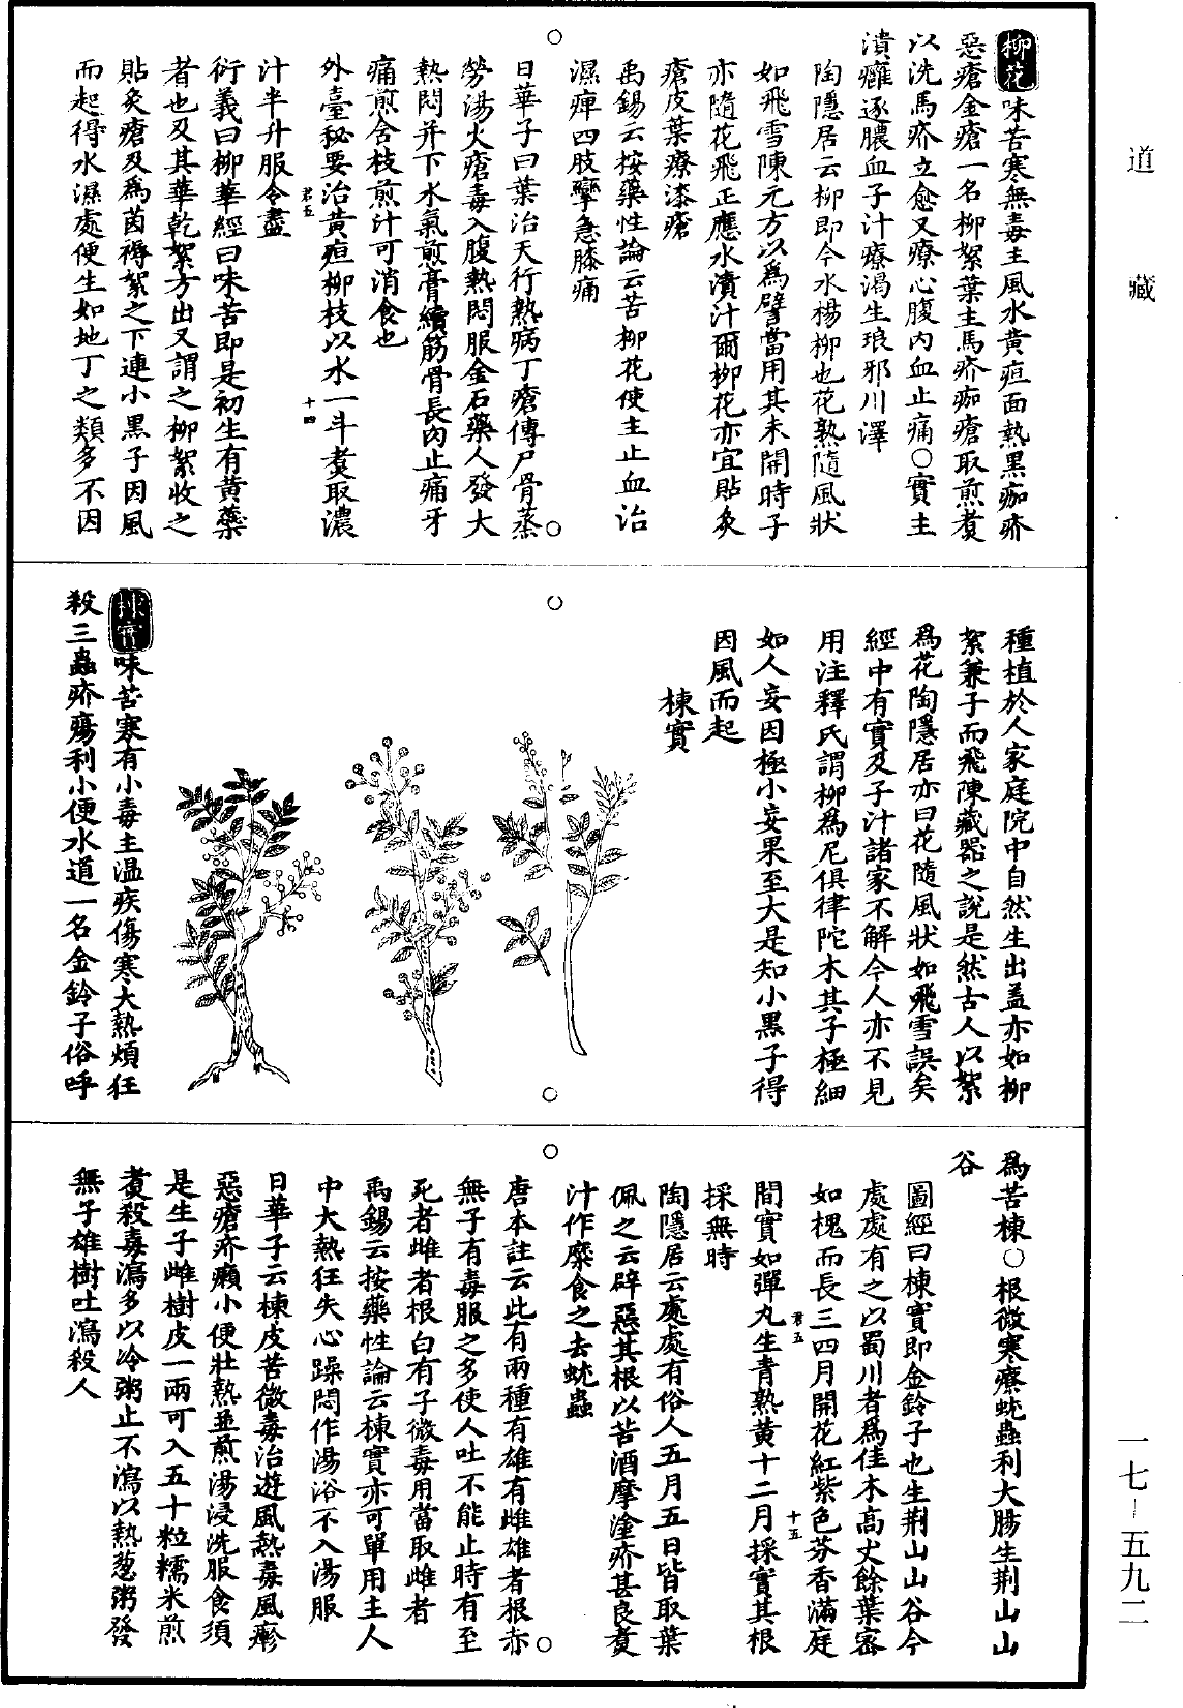 道藏
柳花味苦寒無毒主風水黄疸面熱黒痂疥
惡瘡金瘡一名柳絮葉主馬疥痂瘡取煎煑
以洗馬疥立愈又療心腹内血止痛○實主
潰癰逐膿血子汁療渴生琅邪川澤
陶隱居云柳即今水楊柳也花熟隨風狀
如飛雪陳元方以為譬當用其未開時子
亦隨花飛正應水漬汁爾柳花亦宜貼灸
瘡皮葉療漆瘡
禹錫云桉藥性論云苦柳花使主止血治
濕痺四肢攣急膝痛
日華子曰葉治天行熱病丁瘡傳尸骨蒸
勞湯火瘡毒入腹熱悶服金石藥人發大
熱悶并下水氣煎膏續筋骨長肉止痛牙
痛煎含枝煎汁可消食也
外臺秘要治黃疸柳枝以水一斗煑取濃
君五
十四
汁半升服令盡
衍義曰柳華經曰味苦即是初生有黄蘂
者也及其華乾絮方出又謂之柳絮收之
貼灸瘡及爲茵褥絮之下連小黒子因風
而起得水濕處便生如地丁之類多不因
種植於人家庭院中自然生出盖亦如柳
絮兼子而飛陳藏器之說是然古人以絮
爲花陶隱居亦曰花隨風狀如飛雪誤矣
經中有實及子汁諸家不解今人亦不見
用注釋氏謂柳爲尼俱律陀木其子極細
如人妄因極小妄果至大是知小黒子得
因風而起
楝實
楝實味苦寒有小毒主温疾傷寒大熱煩狂
殺三蟲疥瘍利小便水道一名金鈴子俗呼
爲苦楝○根微寒療蚘蟲利大腸生荆山山
谷
圖經曰楝實即金鈴子也生荆山山谷今
處處有之以蜀川者爲佳木高丈餘葉宻
如槐而長三四月開花紅紫色芬香滿庭
君五
十五
間實如彈丸生青熟黄十二月採實其根
採無時
陶隱居云處處有俗人五月五日皆取葉
佩之云辟惡其根以苦酒摩塗疥甚良煑
汁作糜食之去蚘蟲
唐本註云此有兩種有雄有雌雄者根赤
無子有毒服之多使人吐不能止時有至
死者雌者根白有子微毒用當取雌者
禹錫云按藥性論云楝實亦可單用主人
中大熱狂失心躁悶作湯浴不入湯服
日華子云楝皮苦微毒治遊風熱毒風𤺋
惡瘡疥癩小便壯熱並煎湯浸洗服食須
是生子雌樹皮一兩可入五十粒糯米煎
煑殺毒瀉多以冷粥止不瀉以熱葱粥發
無子雄樹吐瀉殺人
一七—五九二